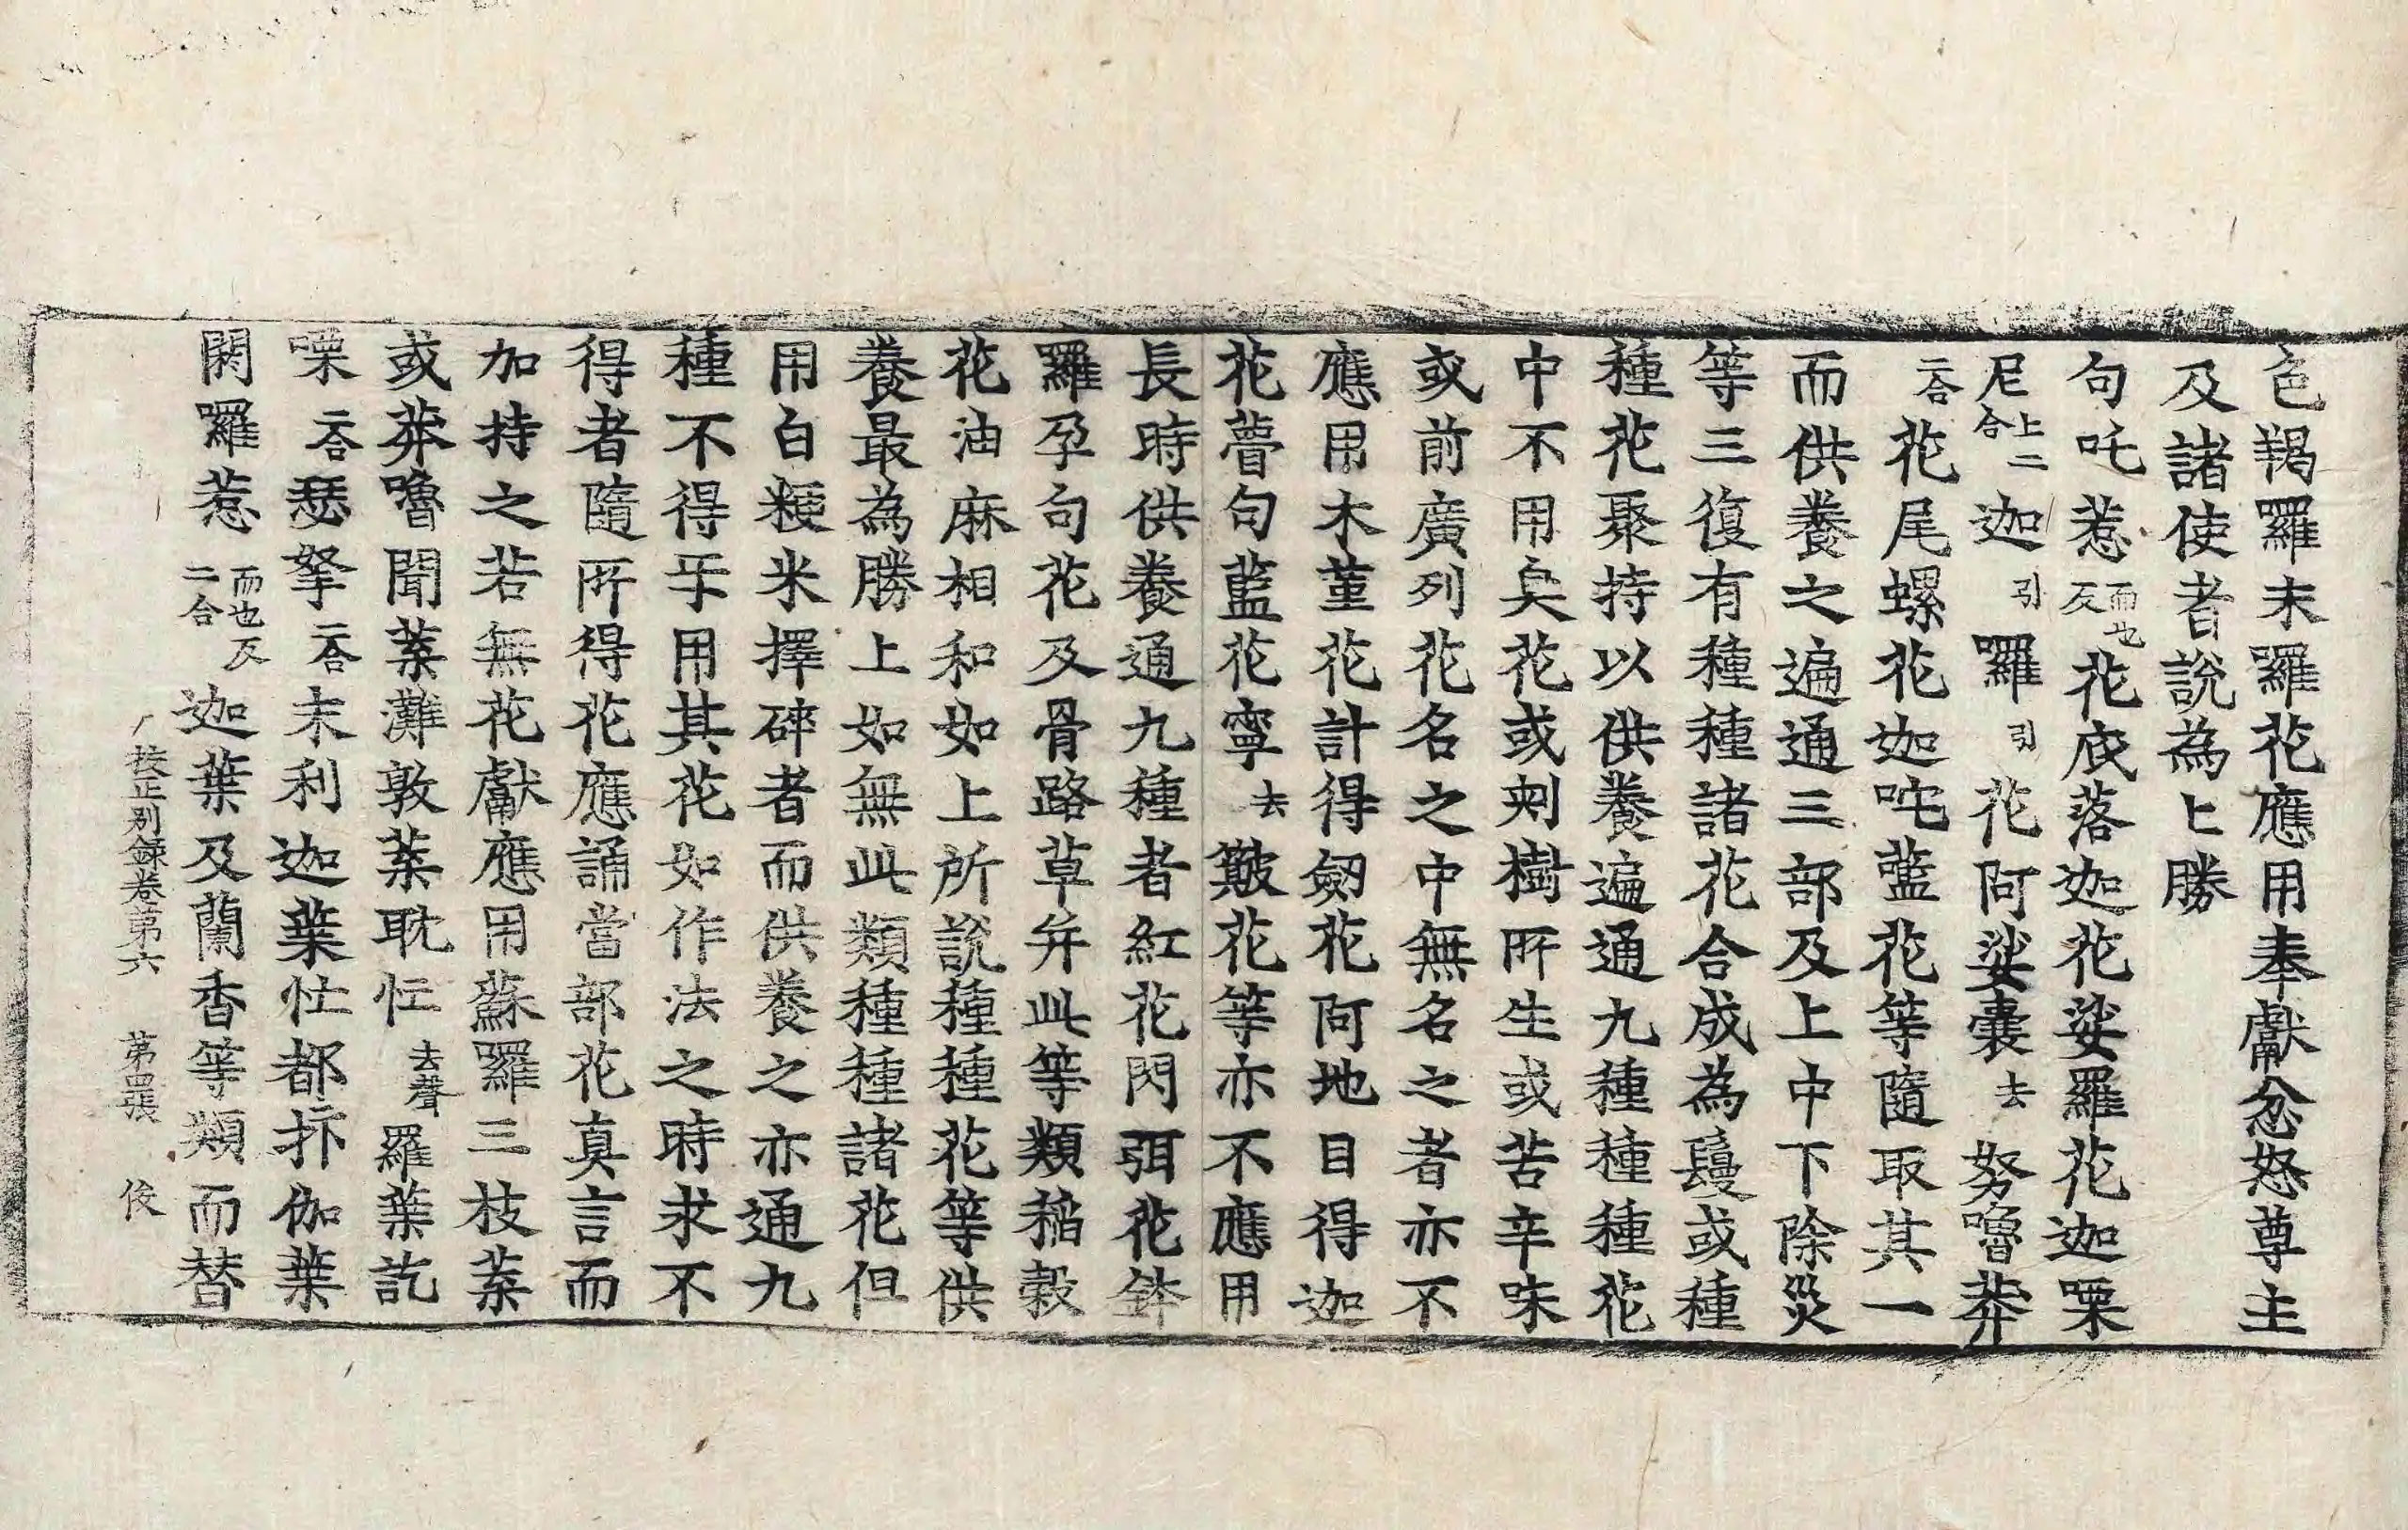 色羯羅末羅花應用奉獻忿怒尊主
及諸使者說為上勝
句吒惹而也反花底落迦花娑羅花迦栗
尼上二合迦引囉引花阿娑嚢去努嚕莽
二合花尾螺花迦咤藍花等隨取其一
而供養之遍通三部及上中下除災
等三復有種種諸花合成為鬘或種
種花聚持以供養遍通九種種種花
中不用臭花或刺樹所生或苦辛味
或前廣列花名之中無名之者亦不
應用木菫花計得劒花阿地目得迦
花瞢句藍花寧去簸花等亦不應用
長時供養通九種者紅花閃弭花鉢
羅孕句花及骨路草并此等類稻穀
花油麻相和如上所說種種花等供
養最為勝上如無此類種種諸花但
用白粳米擇碎者而供養之亦通九
種不得乎用其花如作法之時求不
得者隨所得花應誦當部花真言而
加持之若無花獻應用蘇囉三枝葉
或莽嚕聞葉灘敦葉耽忙去聲羅葉訖
㗚二合瑟拏二合末利迦葉忙都抃伽葉
閼囉惹而也反二合迦葉及蘭香等類而替
挍正別録卷第六 第罡張 俊